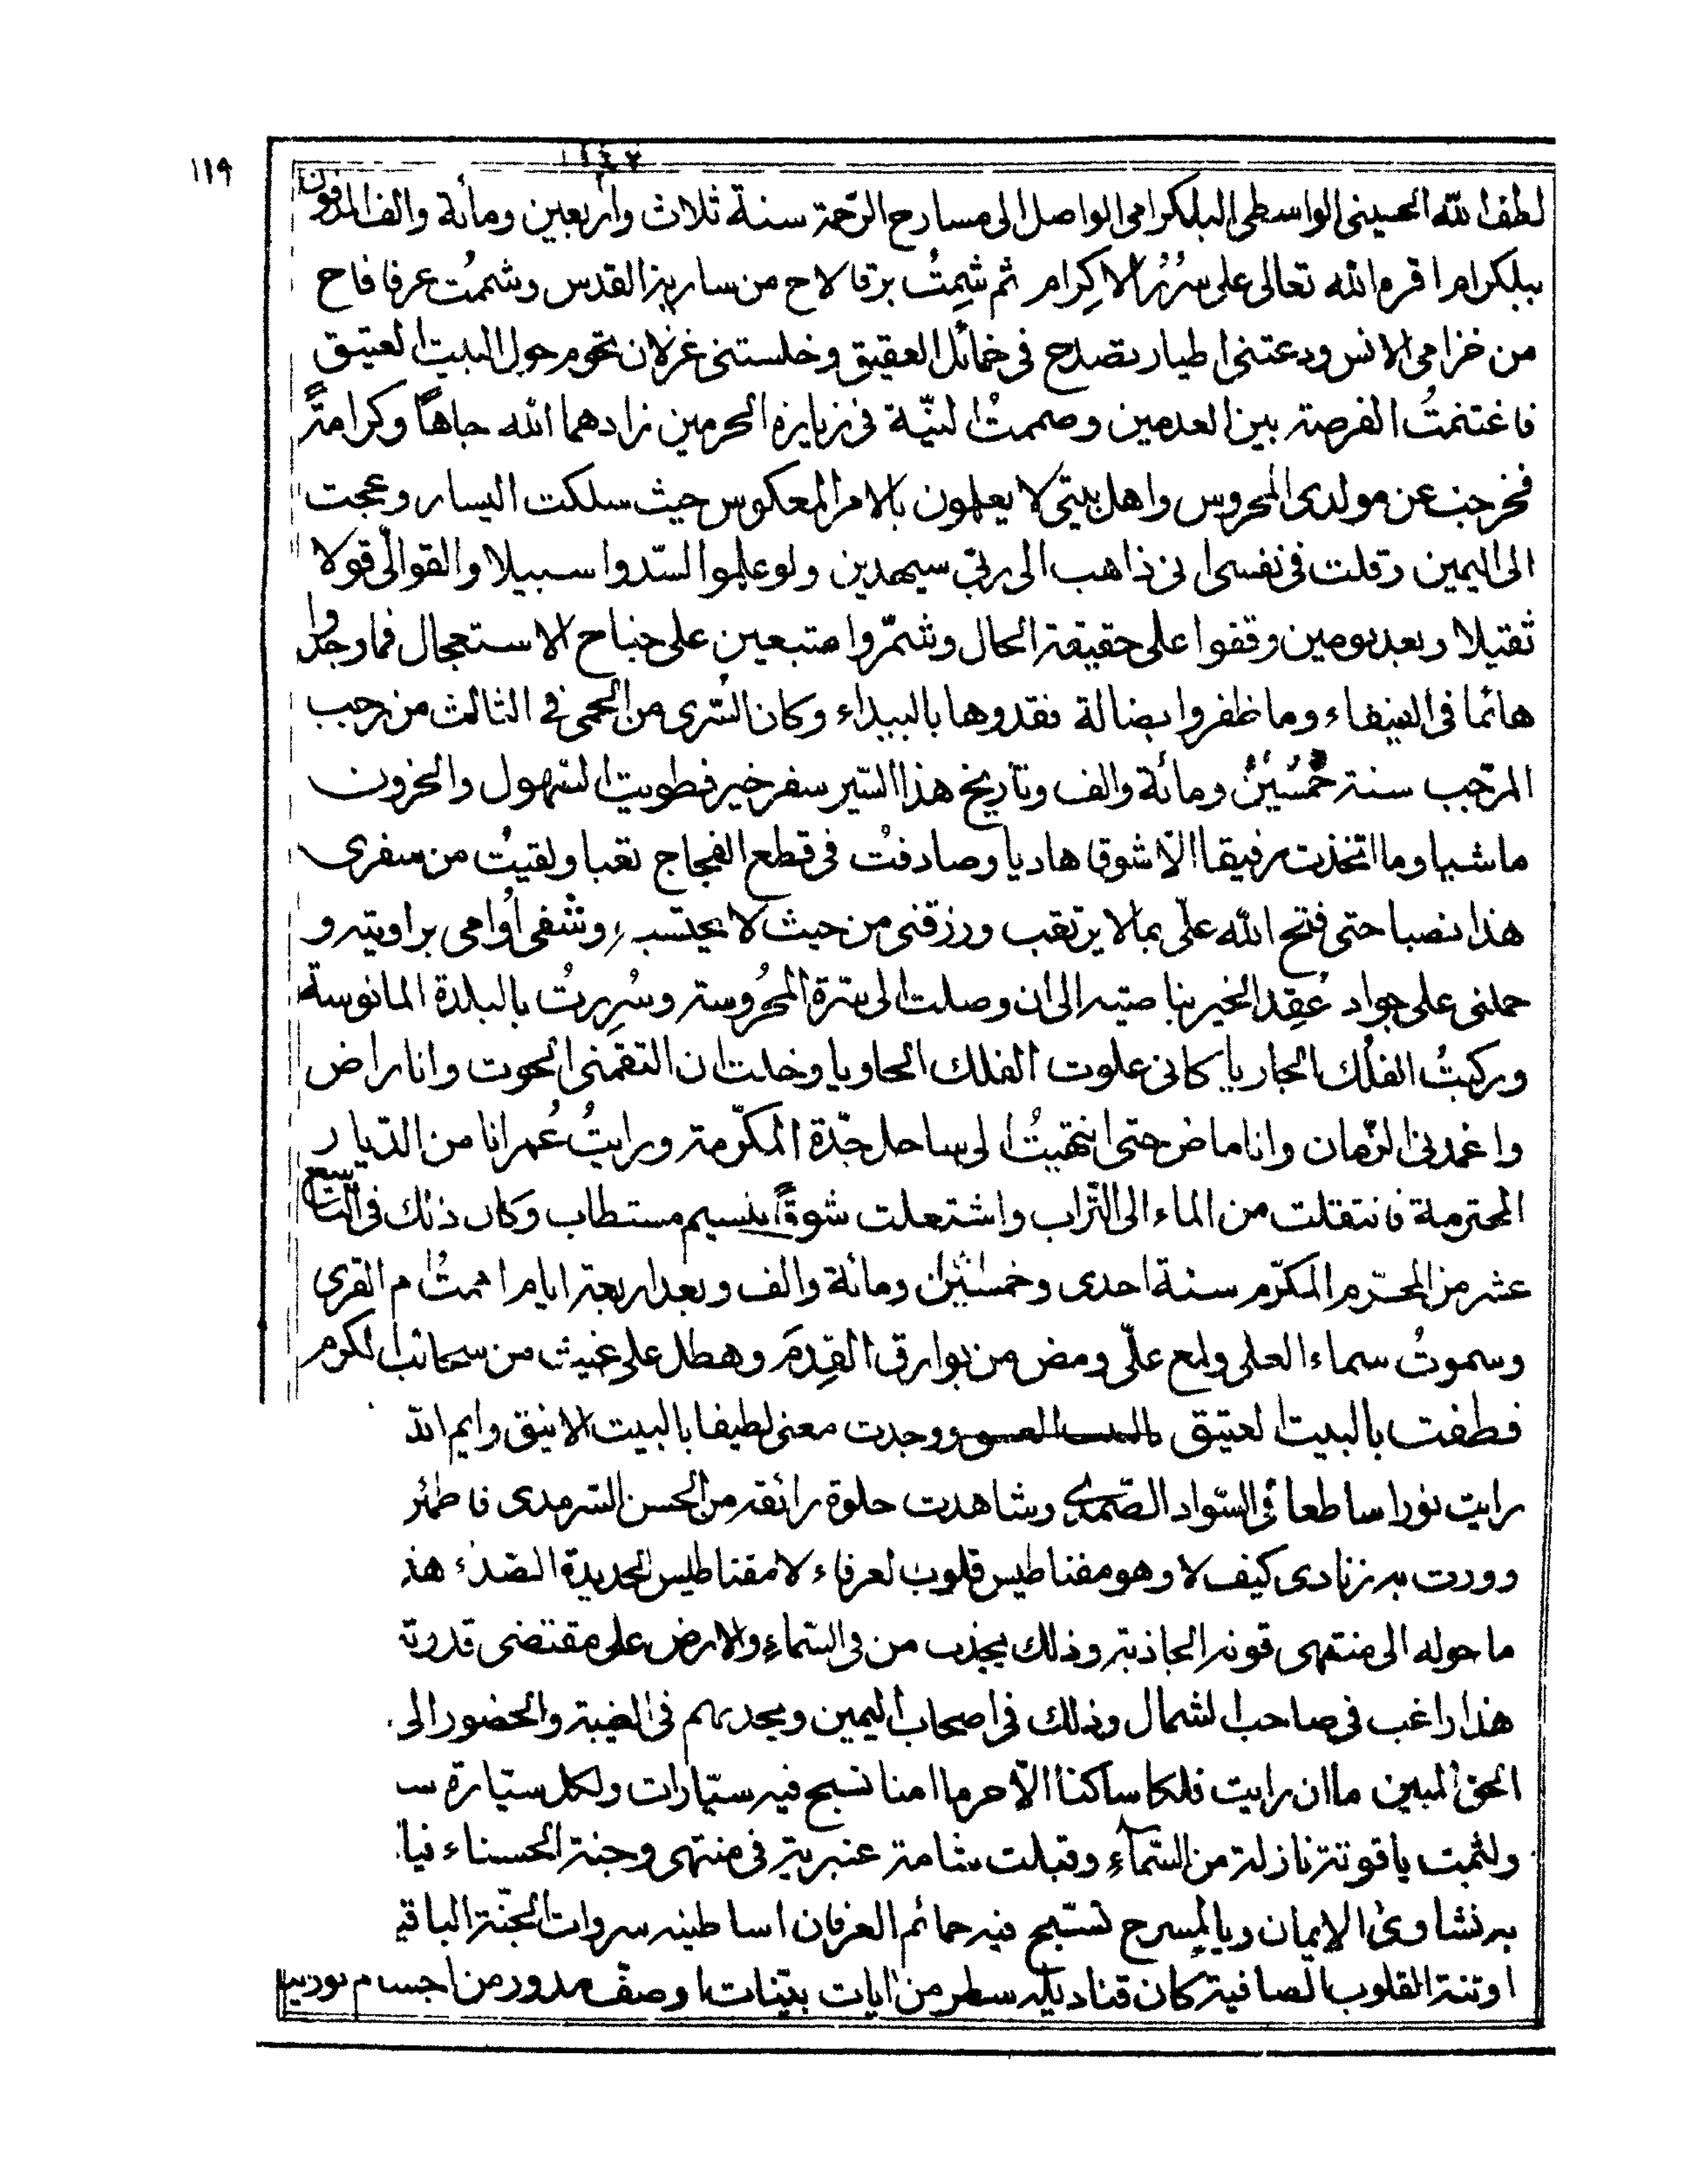 ١١٩
١١٤٣
لطف الله الحسينى الواسطى البلكرامى الواصل الى مسارح الرّحمة سنة ثلاث واربعين ومأئة والف المدفون
ببلكرام اقره الله تعالى على سُرُرِ الاكرام ثم شِمتُ برقا لاح من سارية القدس وشممُت عرفا فاح
من خزامى الانس ودعتنى اطيار تصدح فى خمائل العقيق وخلستنى غزلان تحوم حول البيت العتيق
فاغتنمتُ الفرصة بين العدمين وصممتُ النيّة فى زيارة الحرمين زادهما الله جاهًا وكرامةً
فخرجت عن مولدى المحروس واهل بيتى لا يعلمون بالامر المعكوس حيث سلكت اليسار وعجت
الى اليمين وقلت فى نفسى انى ذاهب الى ربّى سيهدين ولو علموا لسّدوا سبيلا والقوا الىّ قولا
ثقيلا وبعد يومين وقفوا على حقيقة الحال وشمّروا متبعين على جناح الاستعجال فما وجدوا
هائما فى الفيفاء وما ظفروا بضالة فقدوها بالبيداء وكان السُّرى من الحمى فى الثالث من رجب
المرجّب سنة خَمْسِيْنَ ومائة والف وتاريخ هذا السّير سفر خير فطويت السّهول والحزون
ماشيا وما اتخذت رفيقا الّا شوقا هاديا وصادفتُ فى قطع الفجاج تعبا ولقيتُ من سفرى
هذا نصبا حتى فتح الله علّى بما لا يرتقب ورزقنى من حيث لا يحتسب وشفى اُوامى براويته و
حملنى على جواد عُقِد الخير بناصيته الى ان وصلت الى سترة المحُروسة وسُرِرتُ بالبلدة المانوسة
وركبتُ الفلُك الجاريا كانى علوت الفلك الحاويا وخلت ان التقمَنى الحوت وانا راض
واغمدنى الزّمان وانا ماض حتى انتهيتُ الى ساحل جدّة المكرّمة ورايتُ عُمرانا من الدّيار
المحترمة فانتقلت من الماء الى التّراب واشتعلت شوقًا بنسيم مستطاب وكان ذلك فى التاسع
عشر من المحّرم المكرّم سنة احدى وخمسين ومائة والف وبعد اربعة ايام اممتُ ام القرى
وسموتُ سماء العلى ولمع علّى ومض من بوارق القِدمَ وهطل على غيث من سحائب الكرم
فطفت بالبيت العتيق ووجدت معنى لطيفا بالبيت الانيق وايم الله
رايت نورا ساطعا فى السّواد الصّمدى وشاهدت جلوة رائقة من الحسن السّرمدى فاطمئر
وورت به زنادى كيف لا وهو مغناطيس قلوب العرفاء لا مقناطيس الحديدة الصّدء هذ
ما حوله الى منتهى قوته الجاذبة وذلك يجذب من فى السّماءِ والارض على مقتضى قدرته
هذا راغب فى صاحب الشمال وذلك فى اصحاب اليمين ويهديهم فى الغيبة والحضور الى
الحق المبين ما ان رايت فلكا ساكنا الّا حرما امنا تسبح فيه سيّارات ولكل سيّارة
ولثمت ياقوتة نازلة من السّماءِ وقبلت شامة عنبرية فى منتهى وجنة الحسناء فيا
به نشاوىٰ الايمان ويا لمسرح تسّبح فيه حمائم العرفان اساطينه سروات الجنّة الباقيـ
او تنة القلوب الصافية كان قناديله سطر من ايات بيّنات او صفّ مدور من اجسام نوريـ